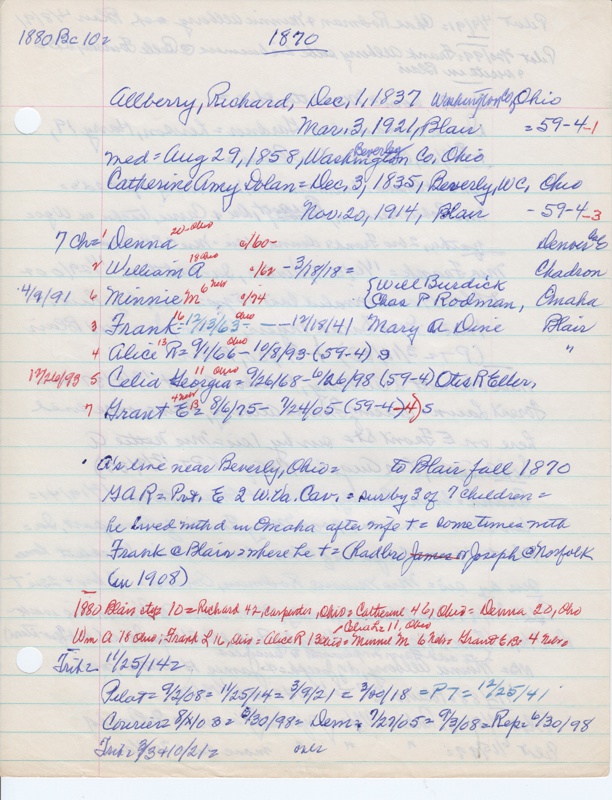 1880 Bc 10=
1870
Allberry, Richard, Dec, 1, 1837 Washington Co, Ohio
Mar. 3, 1921, Blair = 59-4-1
med = Aug 29, 1858, Washington Co, Ohio
Beverley
Catherine Amy Dolan = Dec, 3, 1835, Beverly, W.C, Ohio
Nov. 20, 1914, Blair - 59-4-3
7 Ch = 1 Denna 20-Ohio c/60- Denver
2 William A 18 Ohio c/62 - 3/18/18 = Chadron
4/9/91 6 Minnie M 6 Neb c/74 { Will Burdick
Chas P Rodman, Omaha
3 Frank = 16 12/13/63 Ohio - - 12/18/41 Mary A Dine Blair
4 Alice R = 13 Ohio 9/1/66 - 10/8/93 - (59-4) "
12/26/93 5 Celia Georgia = 11 Ohio 9/26/68 - 6/26/98 (59-4) Otis R Eller,
7 Grant E = 4 Neb 8/6/75 - 7/24/05 (59-4) S
A's live near Beverly, Ohio = to Blair fall 1870
GAR = Pvt. E 2 W.Va. Cav. = sur by 3 of 7 children =
he lived with d in Omaha after wife + = sometimes with
Frank @ Blair = where he + = (had bro James or Joseph @ Norfolk
(in 1908)
1880 Blair 10 = Richard 42, carpenter, Ohio = Catherine 46, Ohio = Denna 20, Oho
Celiah = 11, Ohio
Wm A 18 Ohio; Frank L 16, Ohio = Alice R 13 Ohio = Minnie M 6 Neb = Grant E B 4 Neb =
Trib = 11/25/14 =
Pilot = 9/2/08 = 11/25/14 = 3/9/21 = 3/20/18 = P T = 12/25/41
Courier = 8/2/03 = 6/30/98 = Dem = 7/27/05 = 9/3/08 = Rep = 6/30/98
Trib = 3/3+10/21 = over